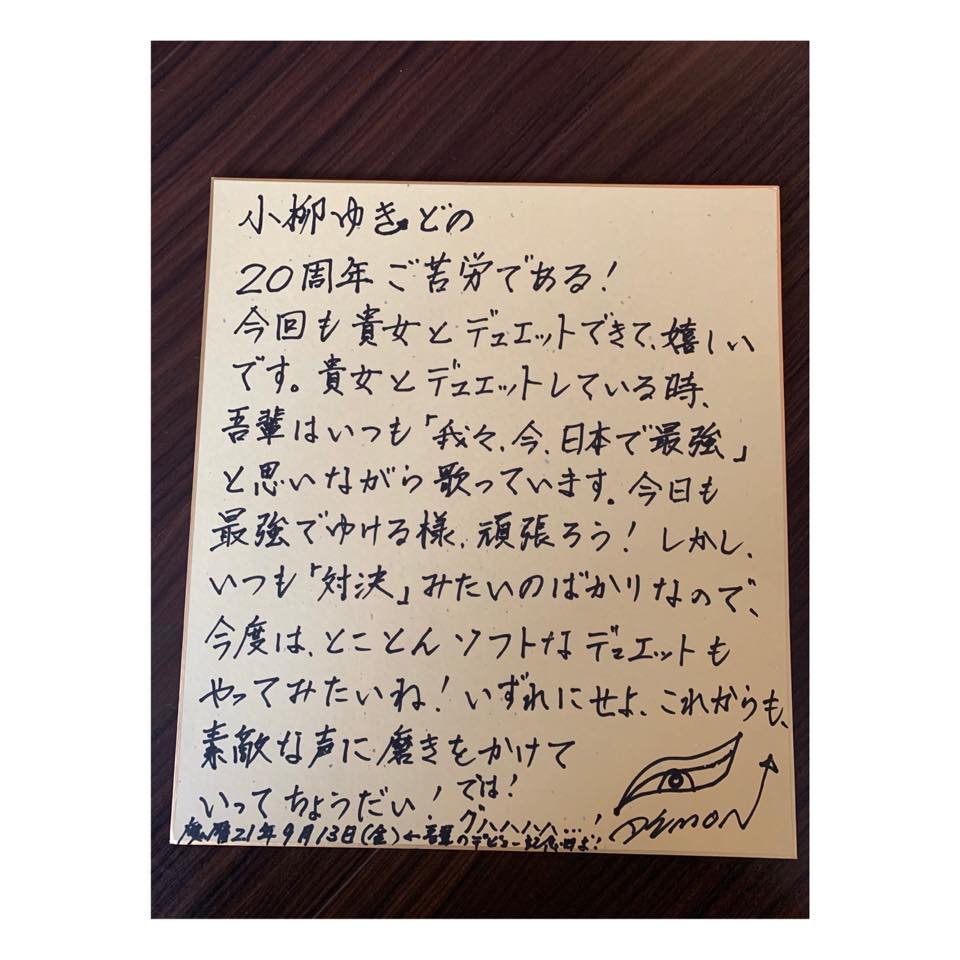 小柳ゆきどの
20周年ご苦労である！
今回も貴女とデュエットできて、嬉しい
です。貴女とデュエットしている時、
吾輩はいつも「我々、今、日本で最強」
と思いながら歌っています。今日も
最強でゆける様、頑張ろう！しかし、
いつも「対決」みたいのばかりなので、
今度は、とことんソフトなデュエットも
やってみたいね！いずれにせよ、これからも、
素敵な声に磨きをかけて
いってちょうだい！では！
グハハハハ…！
魔暦21年9月13日(金)←吾輩のデビュー記念日よ！
DEMON